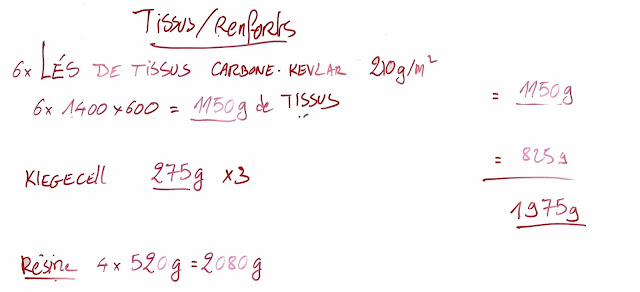 Tissus/Renforts
6x LÉS DE TISSUS CARBONE-KEVLAR 210g/m²
6x 1400x600 = 1150g de TISSUS = 1150g
KLEGECELL 275g x3 = 825g
1975g
Résine 4x 520g = 2080g